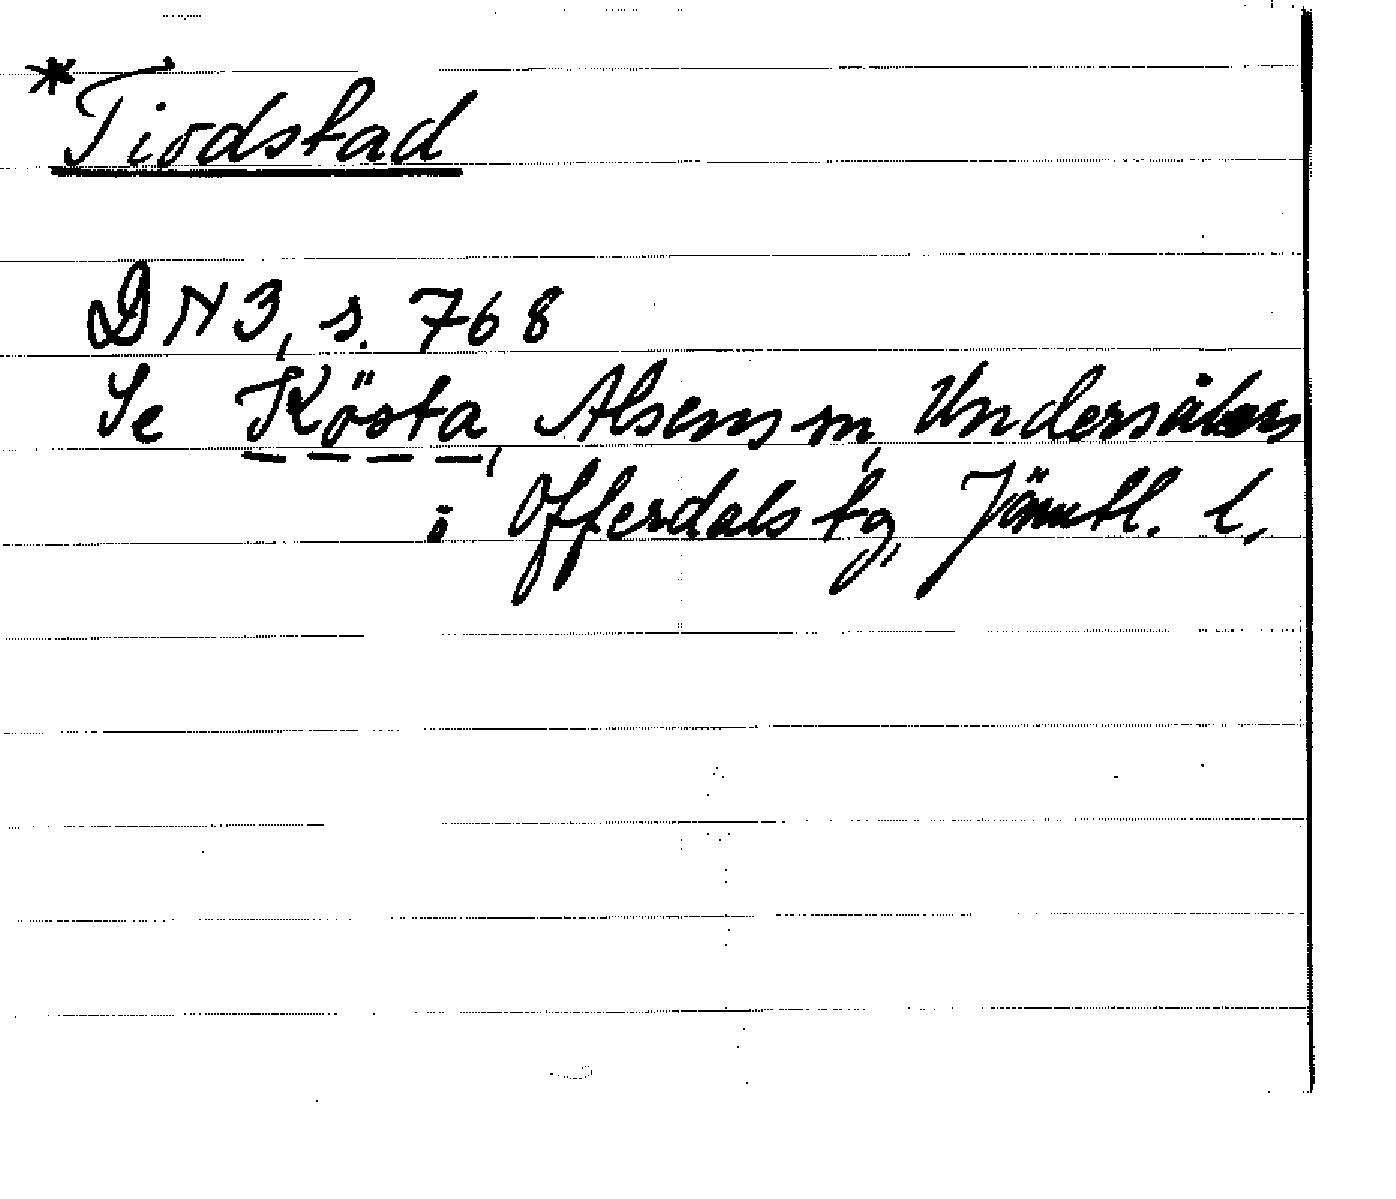 *Tiodstad
DN 3, s. 768
Se Kösta, Alsens sn, Undersåkers
o Offerdals tg, Jämtl. l.